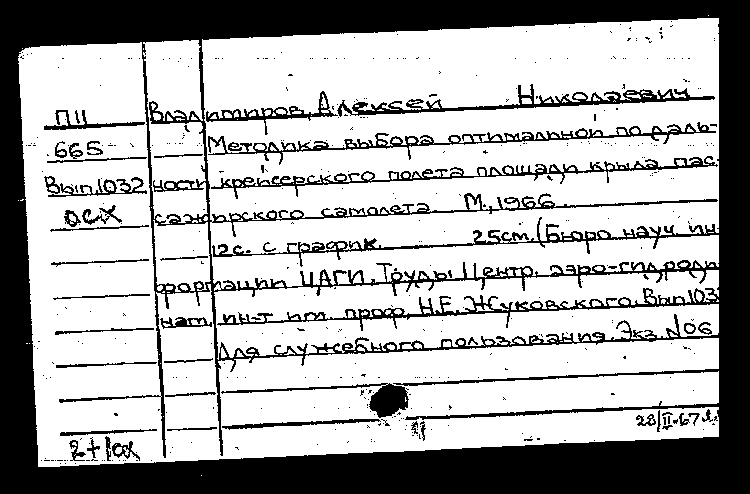 П11 Владимиров, Алексей Николаевич
665 Методика выбора оптимальной по даль-
Вып.1032 ности крейсерского полета площади крыла пас-
осх сажирского самолета. М., 1966.
12с. с график. 25см. (Бюро науч. ин-
формации ЦАГИ. Труды Центр. аэро-гидроди-
нам. ин-т им. проф. Н.Е. Жуковского. Вып.1032
Для служебного пользования. Экз. №06
28/II-67
2+1